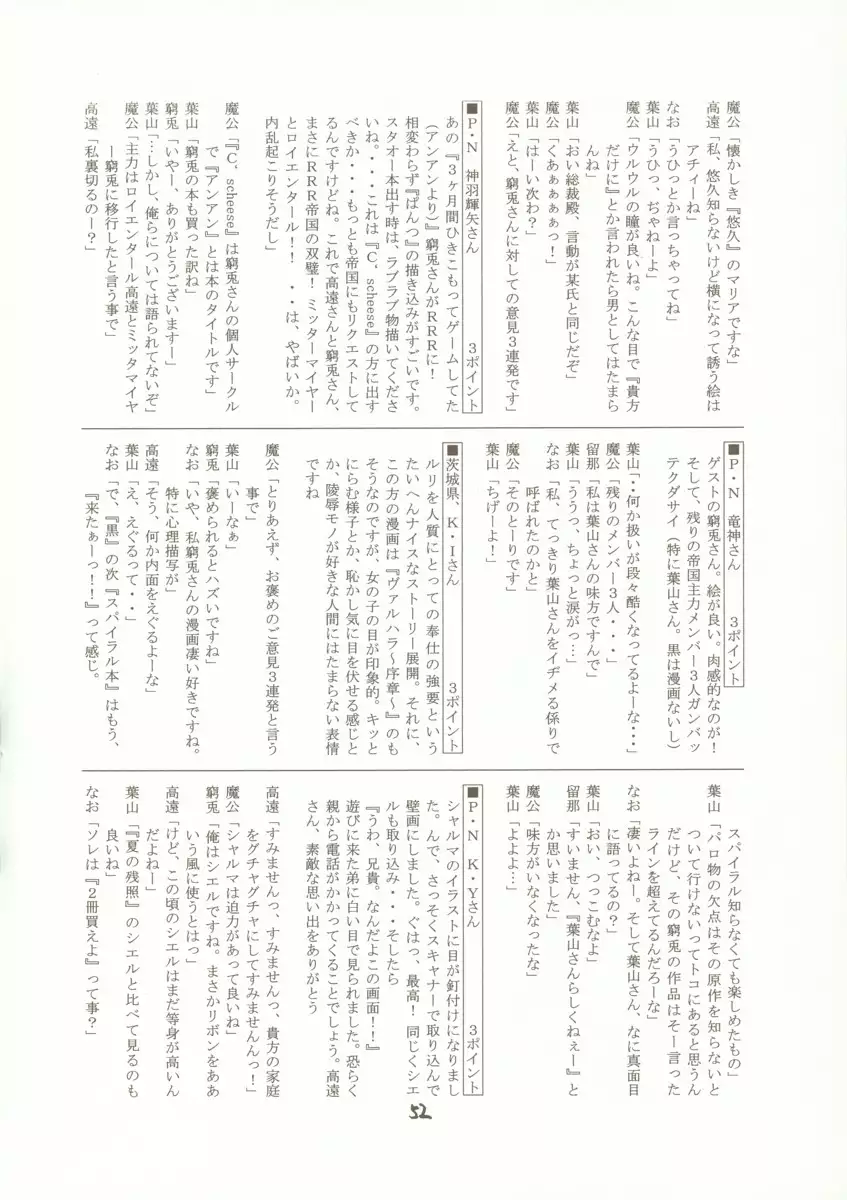 魔公「懐かしき『悠久』のマリアですな」
高遠「私、悠久知らないけど横になって誘う絵は
アチィーね」
なお「うひっとか言っちゃってね」
葉山「うひっ、ぢゃねーよ」
魔公「ウルウルの瞳が良いね。こんな目で『貴方
だけに』とか言われたら男としてはたまら
んね」
葉山「おい総裁殿、言動が某氏と同じだぞ」
魔公「くあぁぁぁぁっ！」
葉山「はーい次わ？」
魔公「えと、窮兎さんに対しての意見３連発です」
■Ｐ・Ｎ　神羽輝矢さん　３ポイント
あの『３ヶ月間ひきこもってゲームしてた
（アンアンより）』窮兎さんがＲＲＲに！
相変わらず『ぱんつ』の描き込みがすごいです。
スタオー本出す時は、ラブラブ物描いてくださ
いね。・・・これは『Ｃ，scheese』の方に出す
べきか・・・もっとも帝国にもリクエストして
るんですけどね。これで高遠さんと窮兎さん、
まさにＲＲＲ帝国の双璧！ミッターマイヤー
とロイエンタール！！・・は、やばいか。
内乱起こりそうだし」
魔公「『Ｃ，scheese』は窮兎さんの個人サークル
で『アンアン』とは本のタイトルです」
葉山「窮兎の本も買った訳ね」
窮兎「いやー、ありがとうございますー」
葉山「…しかし、俺らについては語られてないぞ」
魔公「主力はロイエンタール高遠とミッタマイヤ
ー窮兎に移行したと言う事で」
高遠「私裏切るのー？」
■Ｐ・Ｎ　竜神さん　３ポイント
ゲストの窮兎さん。絵が良い。肉感的なのが！
そして、残りの帝国主力メンバー３人ガンバッ
テクダサイ（特に葉山さん。黒は漫画ないし）
葉山「・・何か扱いが段々酷くなってるよーな・・・」
魔公「残りのメンバー３人・・・」
留那「私は葉山さんの味方ですんで」
葉山「ううっ、ちょっと涙がっ…」
なお「私、てっきり葉山さんをイヂメる係りで
呼ばれたのかと」
魔公「そのとーりです」
葉山「ちげーよ！」
■茨城県、Ｋ・Ｉさん　３ポイント
ルリを人質にとっての奉仕の強要という
たいへんナイスなストーリー展開。それに、
この方の漫画は『ヴァルハラ～序章～』のも
そうなのですが、女の子の目が印象的。キッと
にらむ様子とか、恥かし気に目を伏せる感じと
か、陵辱モノが好きな人間にはたまらない表情
ですね
魔公「とりあえず、お褒めのご意見３連発と言う
事で」
葉山「いーなぁ」
窮兎「褒められるとハズいですね」
なお「いや、私窮兎さんの漫画凄い好きですね。
特に心理描写が」
高遠「そう、何か内面をえぐるよーな」
葉山「え、えぐるって・・」
なお「で、『黒』の次『スパイラル本』はもう、
『来たぁーっ！！』って感じ。
スパイラル知らなくても楽しめたもの」
葉山「パロ物の欠点はその原作を知らないと
ついて行けないってトコにあると思うん
だけど、その窮兎の作品はそー言った
ラインを超えてるんだろーな」
なお「凄いよねー。そして葉山さん、なに真面目
に語ってるの？」
葉山「おい、つっこむなよ」
留那「すいません、『葉山さんらしくねぇー』と
か思いました」
魔公「味方がいなくなったな」
葉山「よよよ…」
■Ｐ・Ｎ　Ｋ・Ｙさん　３ポイント
シャルマのイラストに目が釘付けになりまし
た。んで、さっそくスキャナーで取り込んで
壁画にしました。ぐはっ、最高！同じくシエ
ルも取り込み・・・そしたら
『うわ、兄貴。なんだよこの画面！！』
遊びに来た弟に白い目で見られました。恐らく
親から電話がかかってくることでしょう。高遠
さん、素敵な思い出をありがとう
高遠「すみませんっ、すみませんっ、貴方の家庭
をグチャグチャにしてすみませんんっ！」
魔公「シャルマは迫力があって良いね」
窮兎「俺はシエルですね。まさかリボンをああ
いう風に使うとはっ」
高遠「けど、この頃のシエルはまだ等身が高いん
だよねー」
葉山「『夏の残照』のシエルと比べて見るのも
良いね」
なお「ソレは『２冊買えよ』って事？」
52